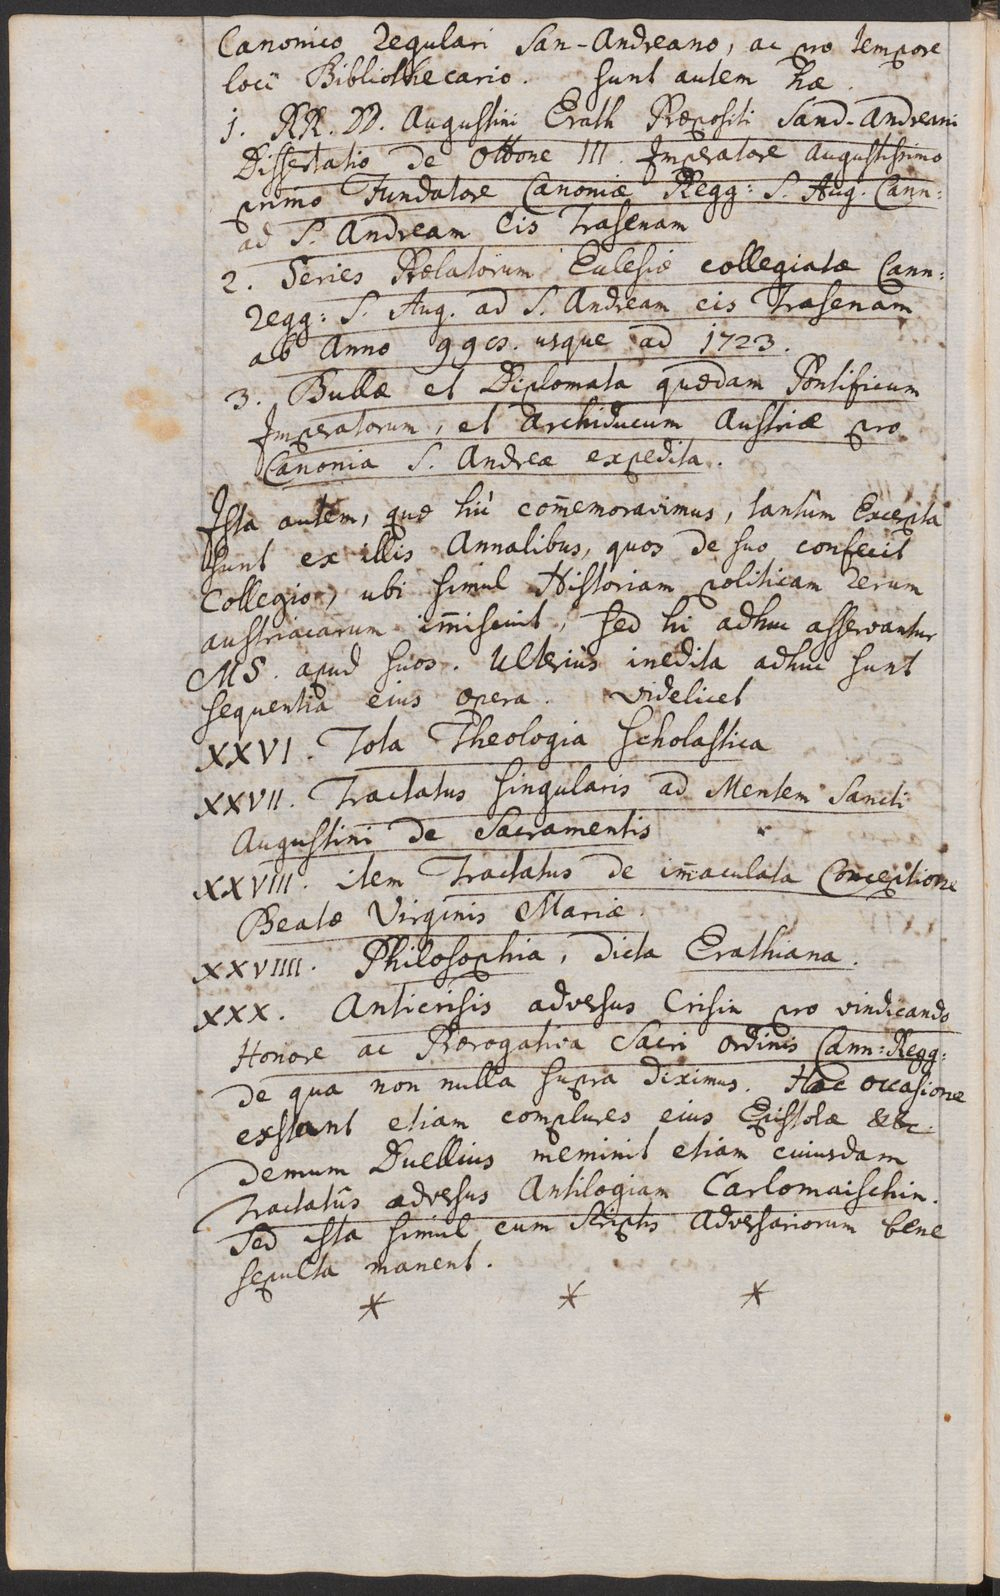 Canonico Regulari San-Andreano, ac pro tempore
loci Bibliothecario. Sunt autem hæ.
1. RR. DD. Augustini Erath Præpositi Sand-Andreani
Dissertatio de Ottone III. Imperatore Augustissimo
primo Fundatore Canoniæ Regg: S. Aug. Cann:
ad S. Andream Cis Trasenam
2. Series Prælatorum Eclesiæ collegiatæ Cann:
Regg: S. Aug. ad S. Andream cis Trasenam
ab Anno usque ad 1723.
3. Bullæ et Diplomata quædam Pontificum
Imperatorum, et Archiducum Austriæ pro
Canonia S. Andreæ expedita.
Ista autem, quæ hic com̄emoravimus, tantùm Excerpta
sunt ex illis Annalibus, quos de suo confecit
Collegio, ubi simul Historiam politicam rerum
austriacarum im̄iscuit, sed hi adhuc asservantur
MS. apud suos. Ulteriùs inedita adhuc sunt
sequentia eius opera. videlicet
XXVI. Tota Theologia Scholastica
XXVII. Tractatus singularis ad Mentem Sancti
Augustini de Sacramentis
XXVIII. item Tractatus de im̄aculata Conceptione
Beatæ Virginis Mariæ.
XXVIIII. Philosophia, dicta Erathiana.
XXX. Anticrisis adversus Crisin pro vindicando
Honore ac Prærogativa Sacri ordinis Cann: Regg:
de qua non nulla supra diximus. Hac occasione
exstant etiam complures eius Epistolæ &c.
demum Duellius meminit etiam cuiusdam
Tractatûs adversus Antilogiam Carlomaischin.
Sed ista simul cum Scriptis Adversariorum bene
sepulta manent.
* * *